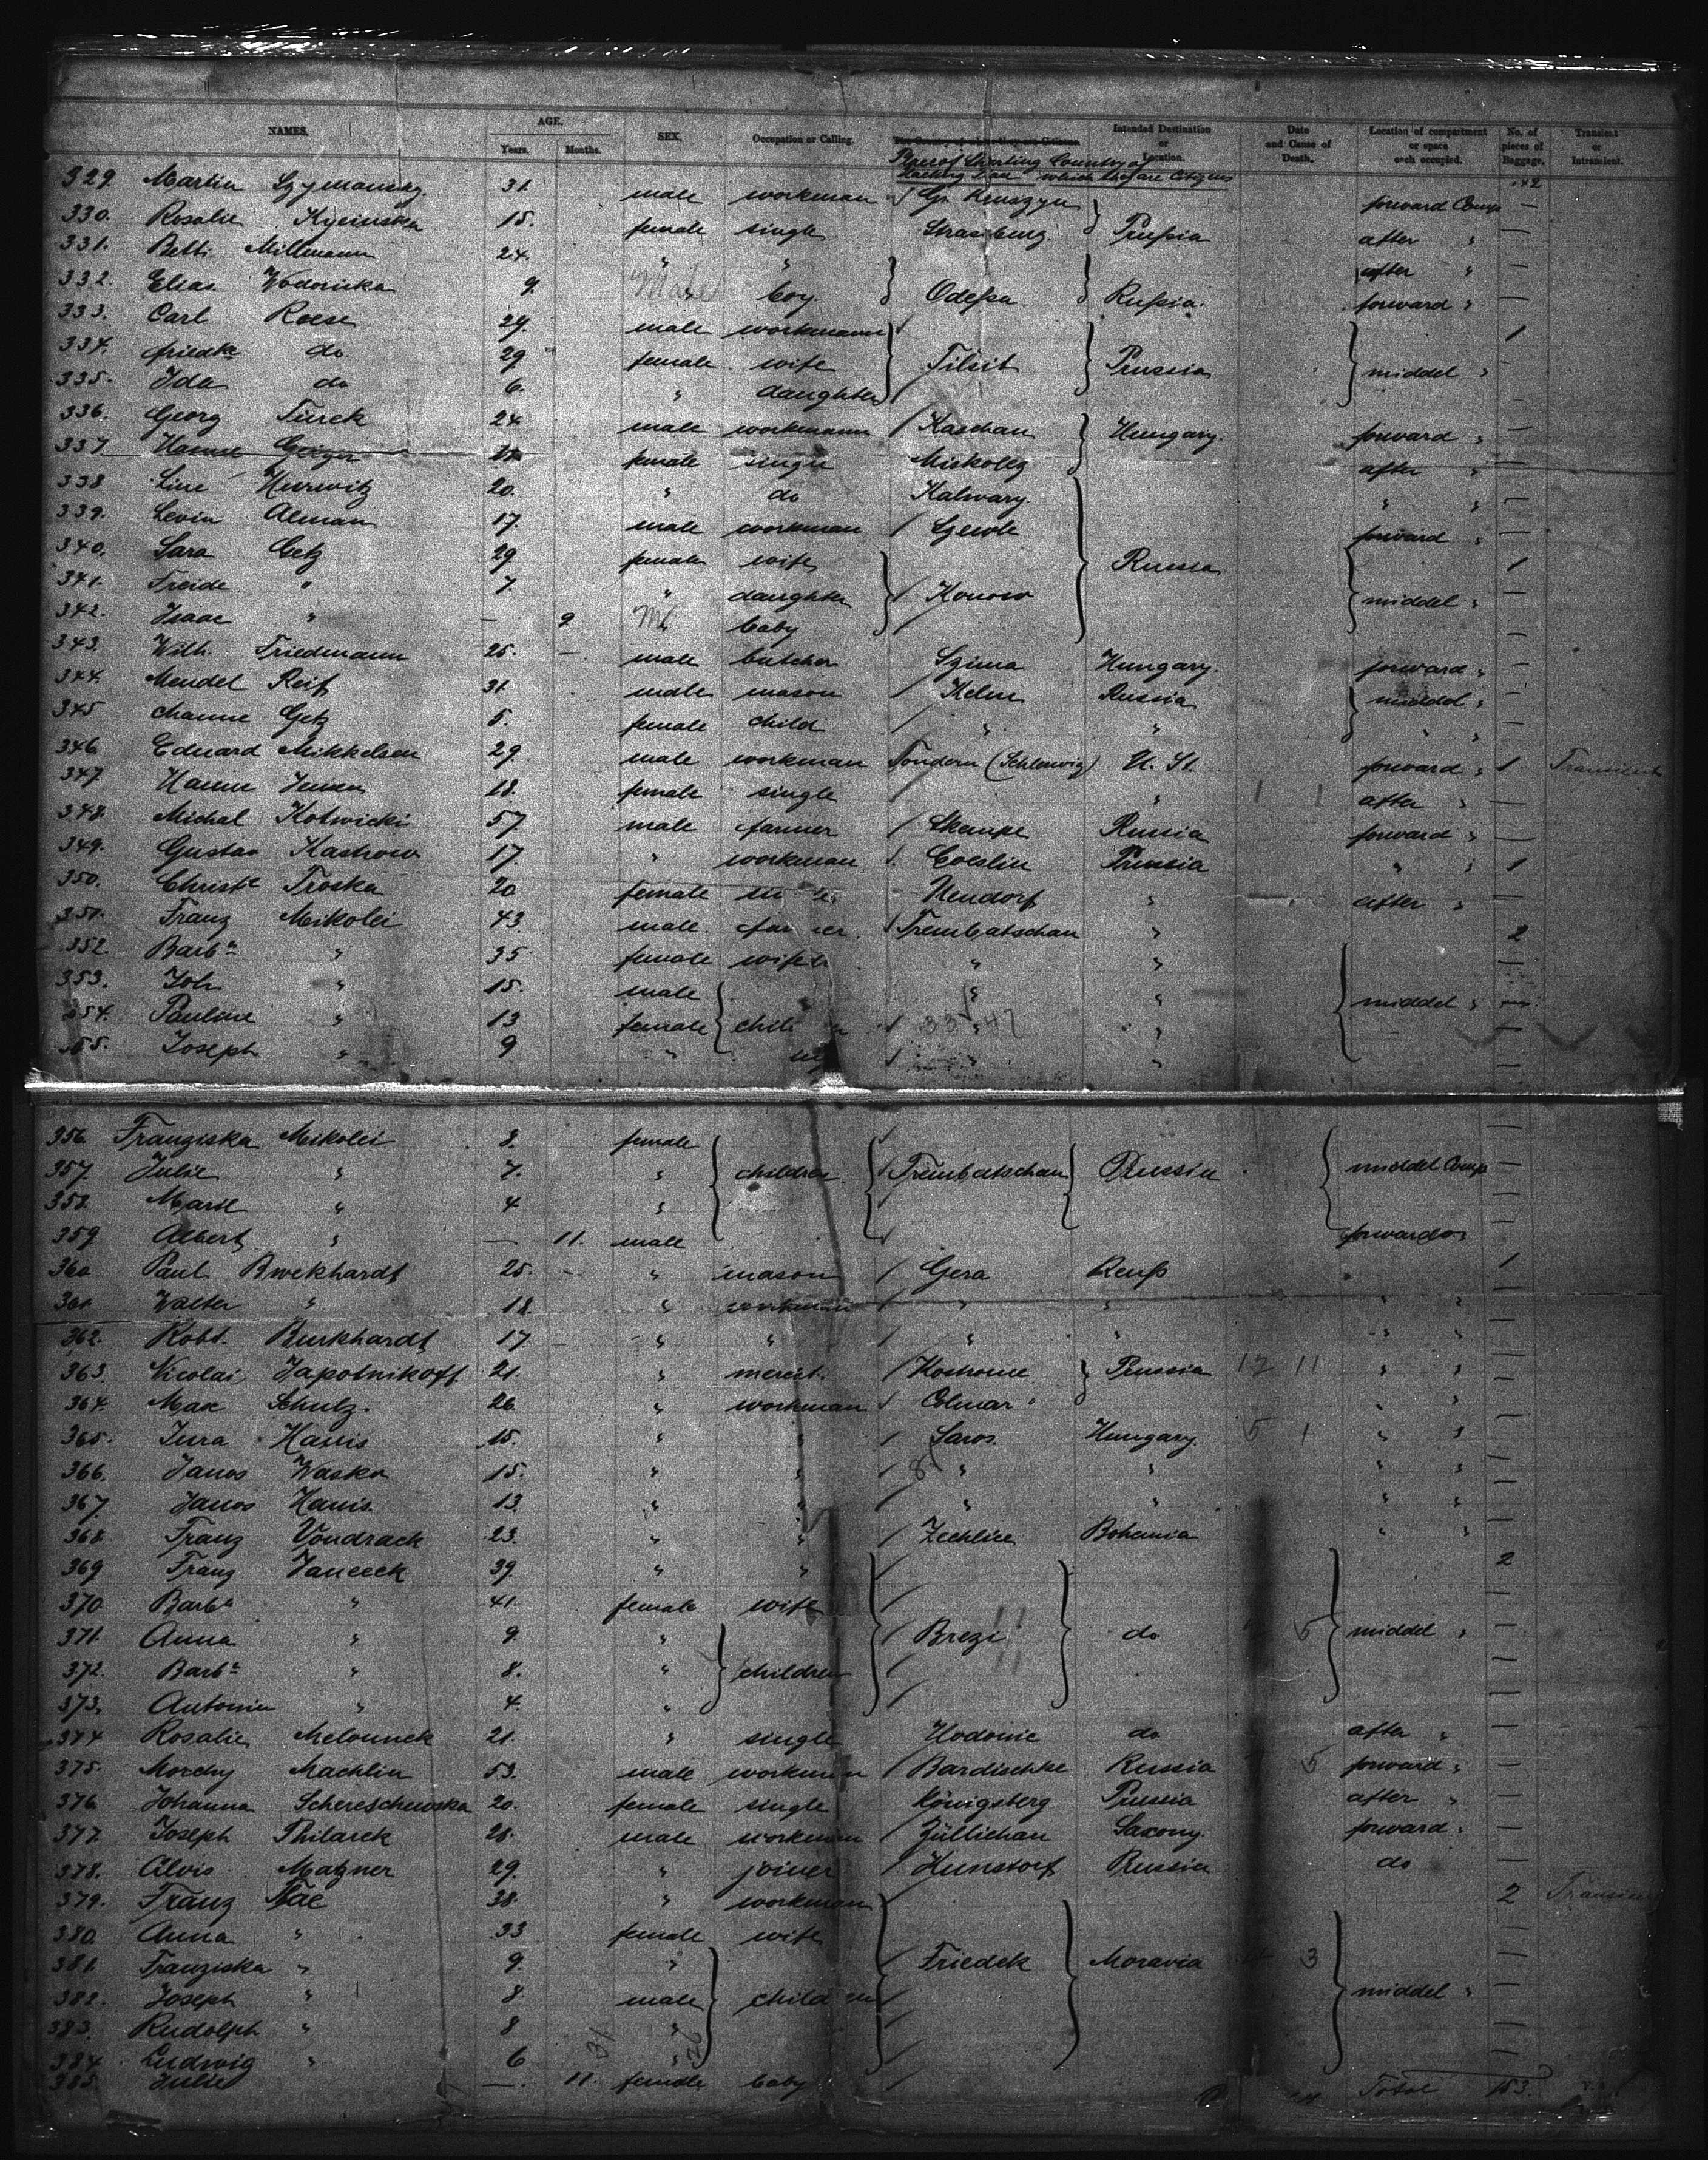 NAMES. AGE. SEX. Occupation or Calling. Intended Destination or Location. Date and Cause of Death. Location of compartment or space each occupied. No. of pieces of Baggage. Transient or Intransient.
Years. Months. Place of Starting Country of which they are Citizens
329. Martin 31. male workman Gr. Kruszyn forward Comp —
330. Rosalie 15. female single Strasburg. Preßia after " —
331. Betti Millmann 24. " " after " —
332. Elias Wodonicka 9. Male boy. Odeßa Rußia. forward " —
333. Carl Roese 29. male workmann 1
334. friedke do. 29 female wife Tilsit Prussia middel "
335. Ida do 6. " daughter
336. Georg Turek 24 male workmann Kaschau Hungary. forward " —
337 Hanne Geiger female single Miskolcz after " —
338 Line Hurwitz 20. " do Kalwary. " " —
339. Levin Alman 17. male workman forward " —
340. Sara Getz 29 female wife Russia 1
341. Freide " 7. " daughter Konow middel " —
342. Isaac " — 9 M baby —
343. Wilh. Friedmann 25. — male butcher Szima Hungary. forward " —
344. Mendel Reif 31. male mason Kelm Russia middel " —
345 Channe Getz 5. female child " " " " —
346 Eduard Mikkelsen 29. male workman Tondern (Schleswig) U. St. forward " 1 Transient
347. Hanne Jensen 18. female single " after " —
348. Michal Kotwicki 57. male farmer Skempe Russia forward " —
349. Gustav Kastrow 17. " workman Coeslin Prussia " " 1
350. Christe Troska 20 female Neudorf " after " —
351. Franz Mikolei 43. male farmer. Trembatschau " 2
352. Barba " 35 female wife " " —
353. Joh " 15. male " " middel "
354. Pauline " 13 female children 33 47 " —
355. Joseph " 9 " " " —
356. Franziska Mikolei 8. female —
357. Julie " 7. " children Trembatschau Prussia middel Comp —
358. Marie " 4 " —
359 Albert " — 11. male forward " —
360 Paul Burckhardt 25. — " mason Gera Reuß 1
361. Walter " 18. " workman " " " " —
362. Robt. Burkhardt 17. — " " " " " " —
363. Nicolai Japotnikoff 21. " mercht. Kostrome Prussia 12 11 " " —
364. Max Schulz. 26. " workman Colmar " " —
365. Jura Hanis 15. " " Saros. Hungary. 5 1 " " —
366. Janos Waska 15. " " 8 " " " " —
367. Janos Hanis. 13. " " " " " " —
368. Franz Vondrack 23. " " Zechlice Bohemia " " —
369 Franz Janeeck 39. " " 2
370 Barba " 41. female wife —
371. Anna " 9. " Brezi do 5 middel " —
372. Barba " 8. " children —
373. Antonia " 4. " —
374 Rosalie Melounek 21. " single Hodonie do after " —
375. Morchy Machlin 53. male workman Bardischke Russia 5 forward " —
376 Johanna Schereschewska 20. female single Königsberg Prussia after " —
377. Joseph Philarek 28. male workman Züllichau Saxony. forward " —
378. Alois Matzner 29. " joiner Hunstorf Russia do —
379. Franz 38. " workman 2 Transient
380. Anna " 33 female wife —
381. Franziska " 9. " Friedek Moravia 3 —
382. Joseph " 8 male children middel " —
383. Rudolph " 8 " —
384. Ludwig " 6 31 " 26 —
385. Julie — 11. female baby Total 153.